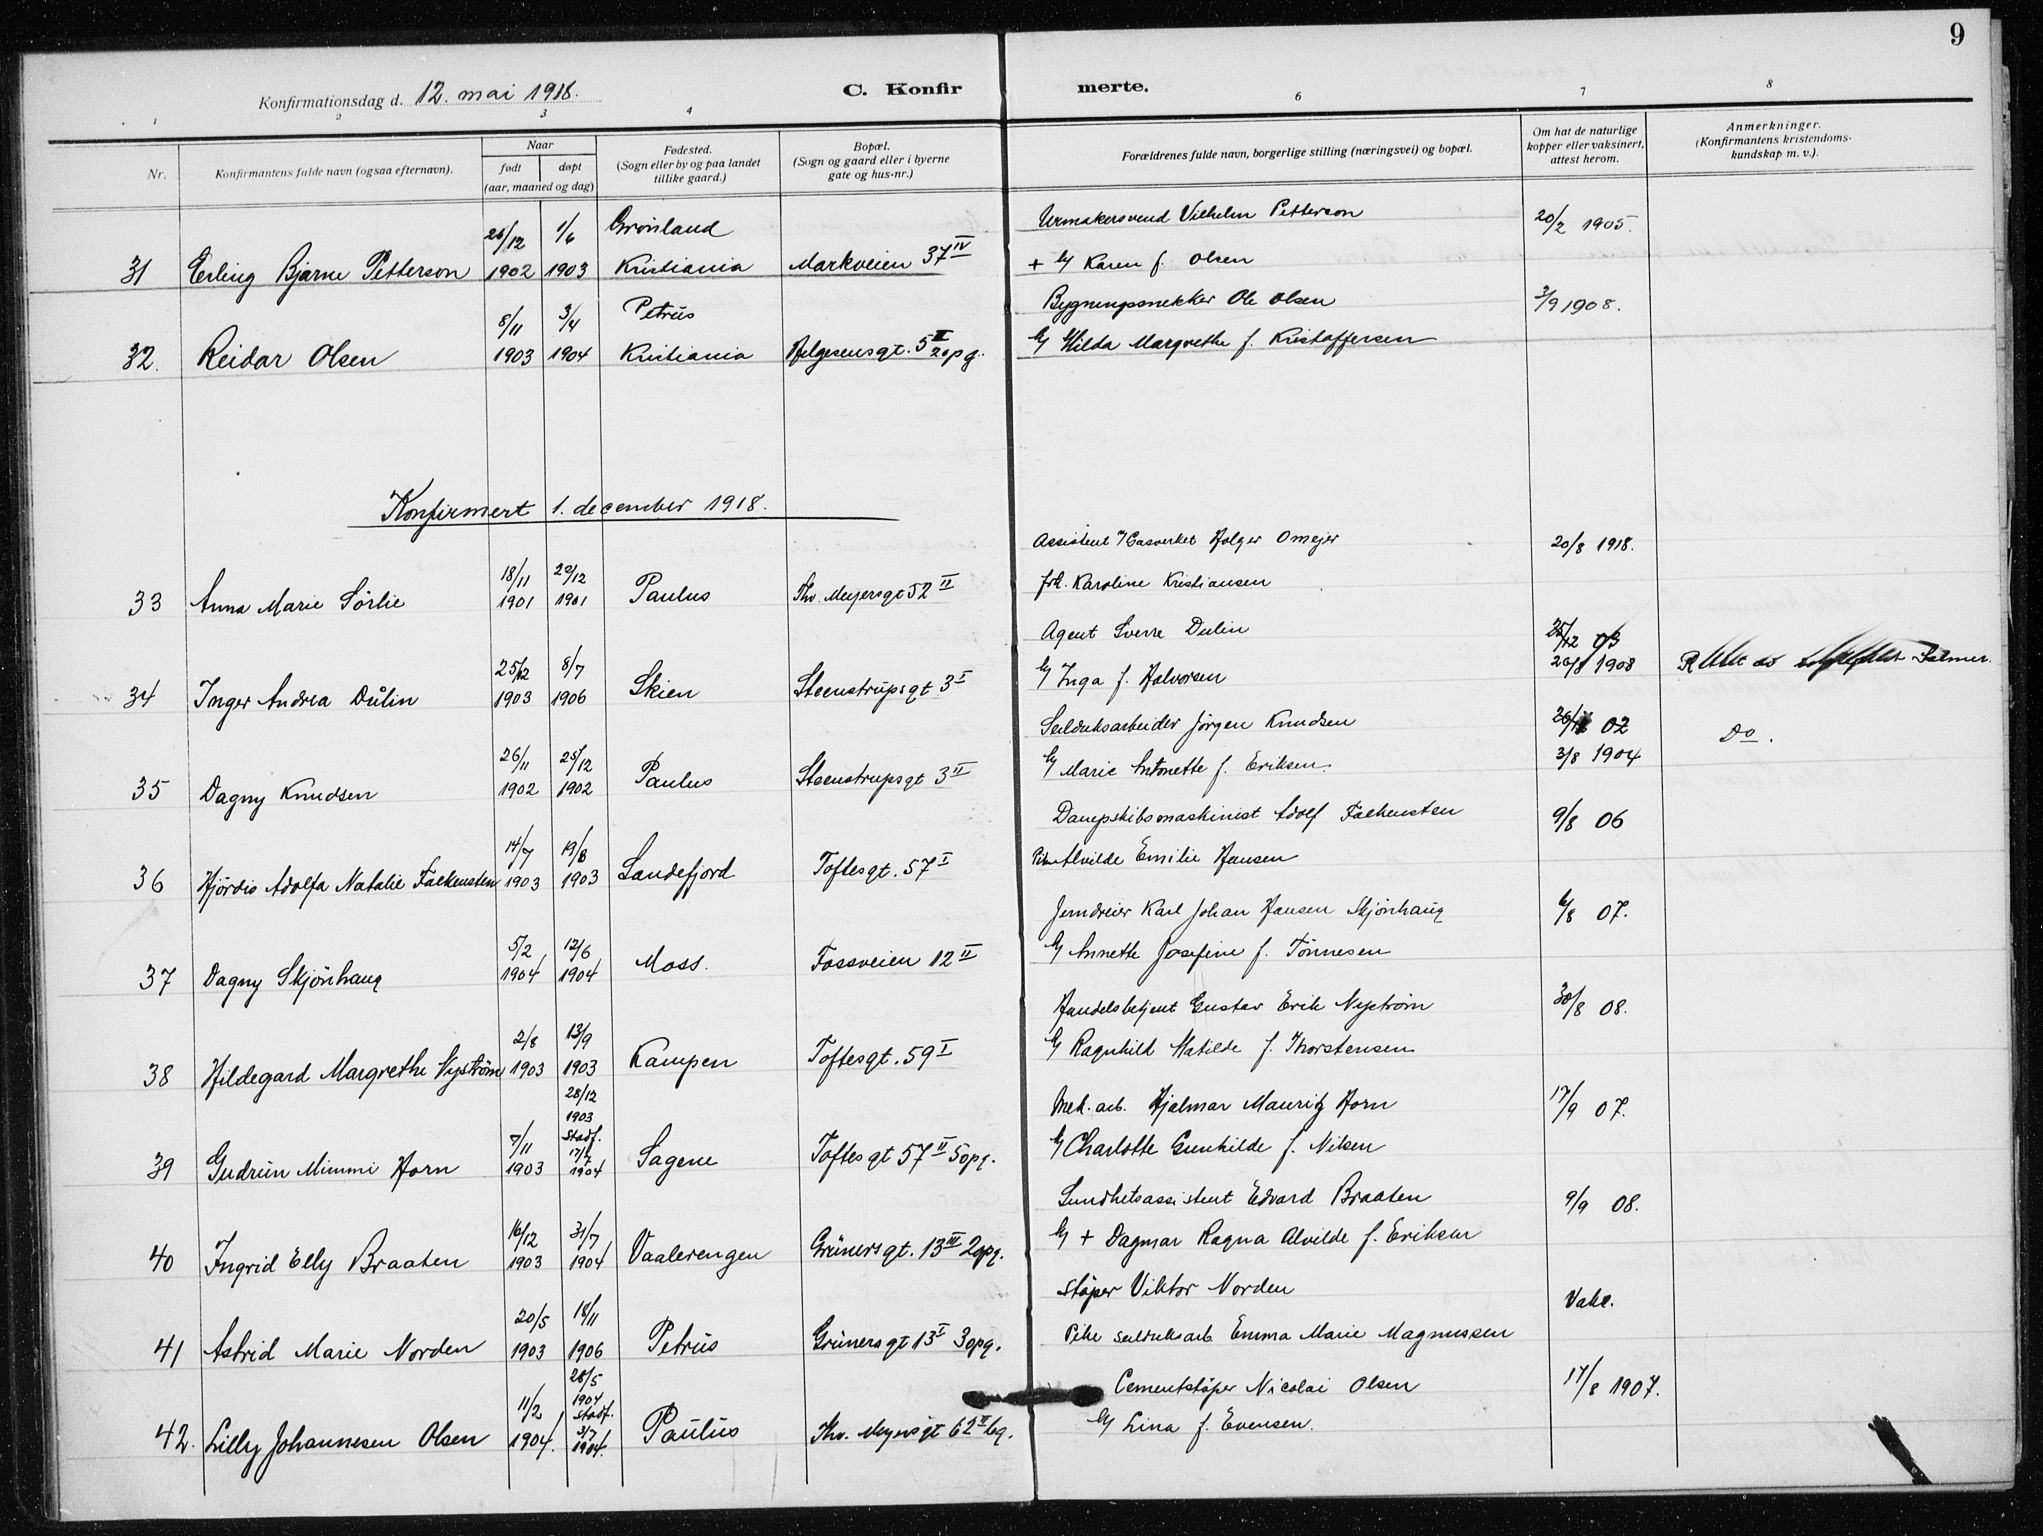 9
Konfirmationsdag d. 12. mai 1918. C. Konfir merte.
1 2 3 4 6 7 8
Nr. Konfirmantens fulde navn (ogsaa efternavn).
Naar
født døpt
(aar, maaned og dag)
Fødested.
(Sogn eller by og paa landet
tillike gaard.)
Bopæl.
(Sogn og gaard eller i byerne
gate og hus-nr.)
Forældrenes fulde navn, borgerlige stilling (næringsvei) og bopæl.
Om hat de naturlige
kopper eller vaksinert,
attest herom.
Anmerkninger.
(Konfirmantens kristendoms-
kundskap m. v.).
26/12 1/6 Grønland Urmakersvend Vilhelm Petterson 20/2 1905.
31 Erling Bjarne Petterson 1902 1903 Kristiania Markveien 37 IV + Karen f. Olsen
8/11 3/4 Petrus Bygningssnekker Ole Olsen 3/9 1908.
32. Reidar Olsen 1903 1904 Kristiania Helgesensgt. 5 II 2opg. Hilda Margrethe f. Kristoffersen
Konfirmert 1. december 1918.
Assistent v/Gasverket Holger Omejer 20/8 1918.
18/11 29/12 frk. Karoline Kristiansen
33 Anna Marie Sörlie 1901 1901 Paulus Thv. Meyersgt 52 II
Agent Sverre Dulin 25/12 03
25/12 8/7 Inga f. Halvorsen 20/8 1908
34 Inger Andrea Dulin 1903 1906 Skien Steenstrupsgt 3 I
Seilduksarbeider Jörgen Knudsen 26/11 02 Do.
26/11 25/12 Marie Antonette f. Eriksen. 3/8 1904
35 Dagny Knudsen 1902 1902 Paulus Steenstrupsgt 3 II
Dampskibsmaskinist Adolf Falkensten 9/8 06
14/7 19/8 Pike Alvilde Emilie Hansen
36 Hjördis Adolfa Natalie Falkensten 1903 1903 Sandefjord Toftesgt. 57 I
Jerndreier Karl Johan Hansen Skjönhaug 6/8 07.
5/2 12/6 Annette Josefine f. Tönnesen
37 Dagny Skjönhaug 1904 1904 Moss. Fossveien 12 II
Handelsbetjent Gustav Erik Nyström 30/8 08.
2/8 13/9 Ragnhild Matilde f. Thorstensen
38 Hildegard Margrethe Nyström 1903 1903 Kampen Toftesgt. 59 I
28/12
1903 Mek. arb. Hjalmar Mauritz Horn 17/9 07.
7/11 stadf. Charlotte Gunhilde f. Nilsen
39 Gudrun Mimmi Horn 1903 17/7 1904 Sagene Toftesgt 57 II 5opg.
Sundhetsassistent Edvard Braaten 9/9 08.
16/12 31/7 + Dagmar Ragna Alvilde f. Eriksen
40 Ingrid Elly Braaten 1903 1904 Vaalerengen Grünersgt. 13 III 2opg.
Støper Viktor Norden Vake.
20/5 18/11 Pike seilduksarb. Emma Marie Magnussen
41 Astrid Marie Norden 1903 1906 Petrus Grünersgt 13 I 3opg.
28/5
1904 Cementstøper Nicolai Olsen 17/8 1907.
11/2 stadf. Lina f. Evensen.
42. Lilly Johannesen Olsen 1904. 3/7 1904. Paulus Thv. Meyersgt 62 II bg.